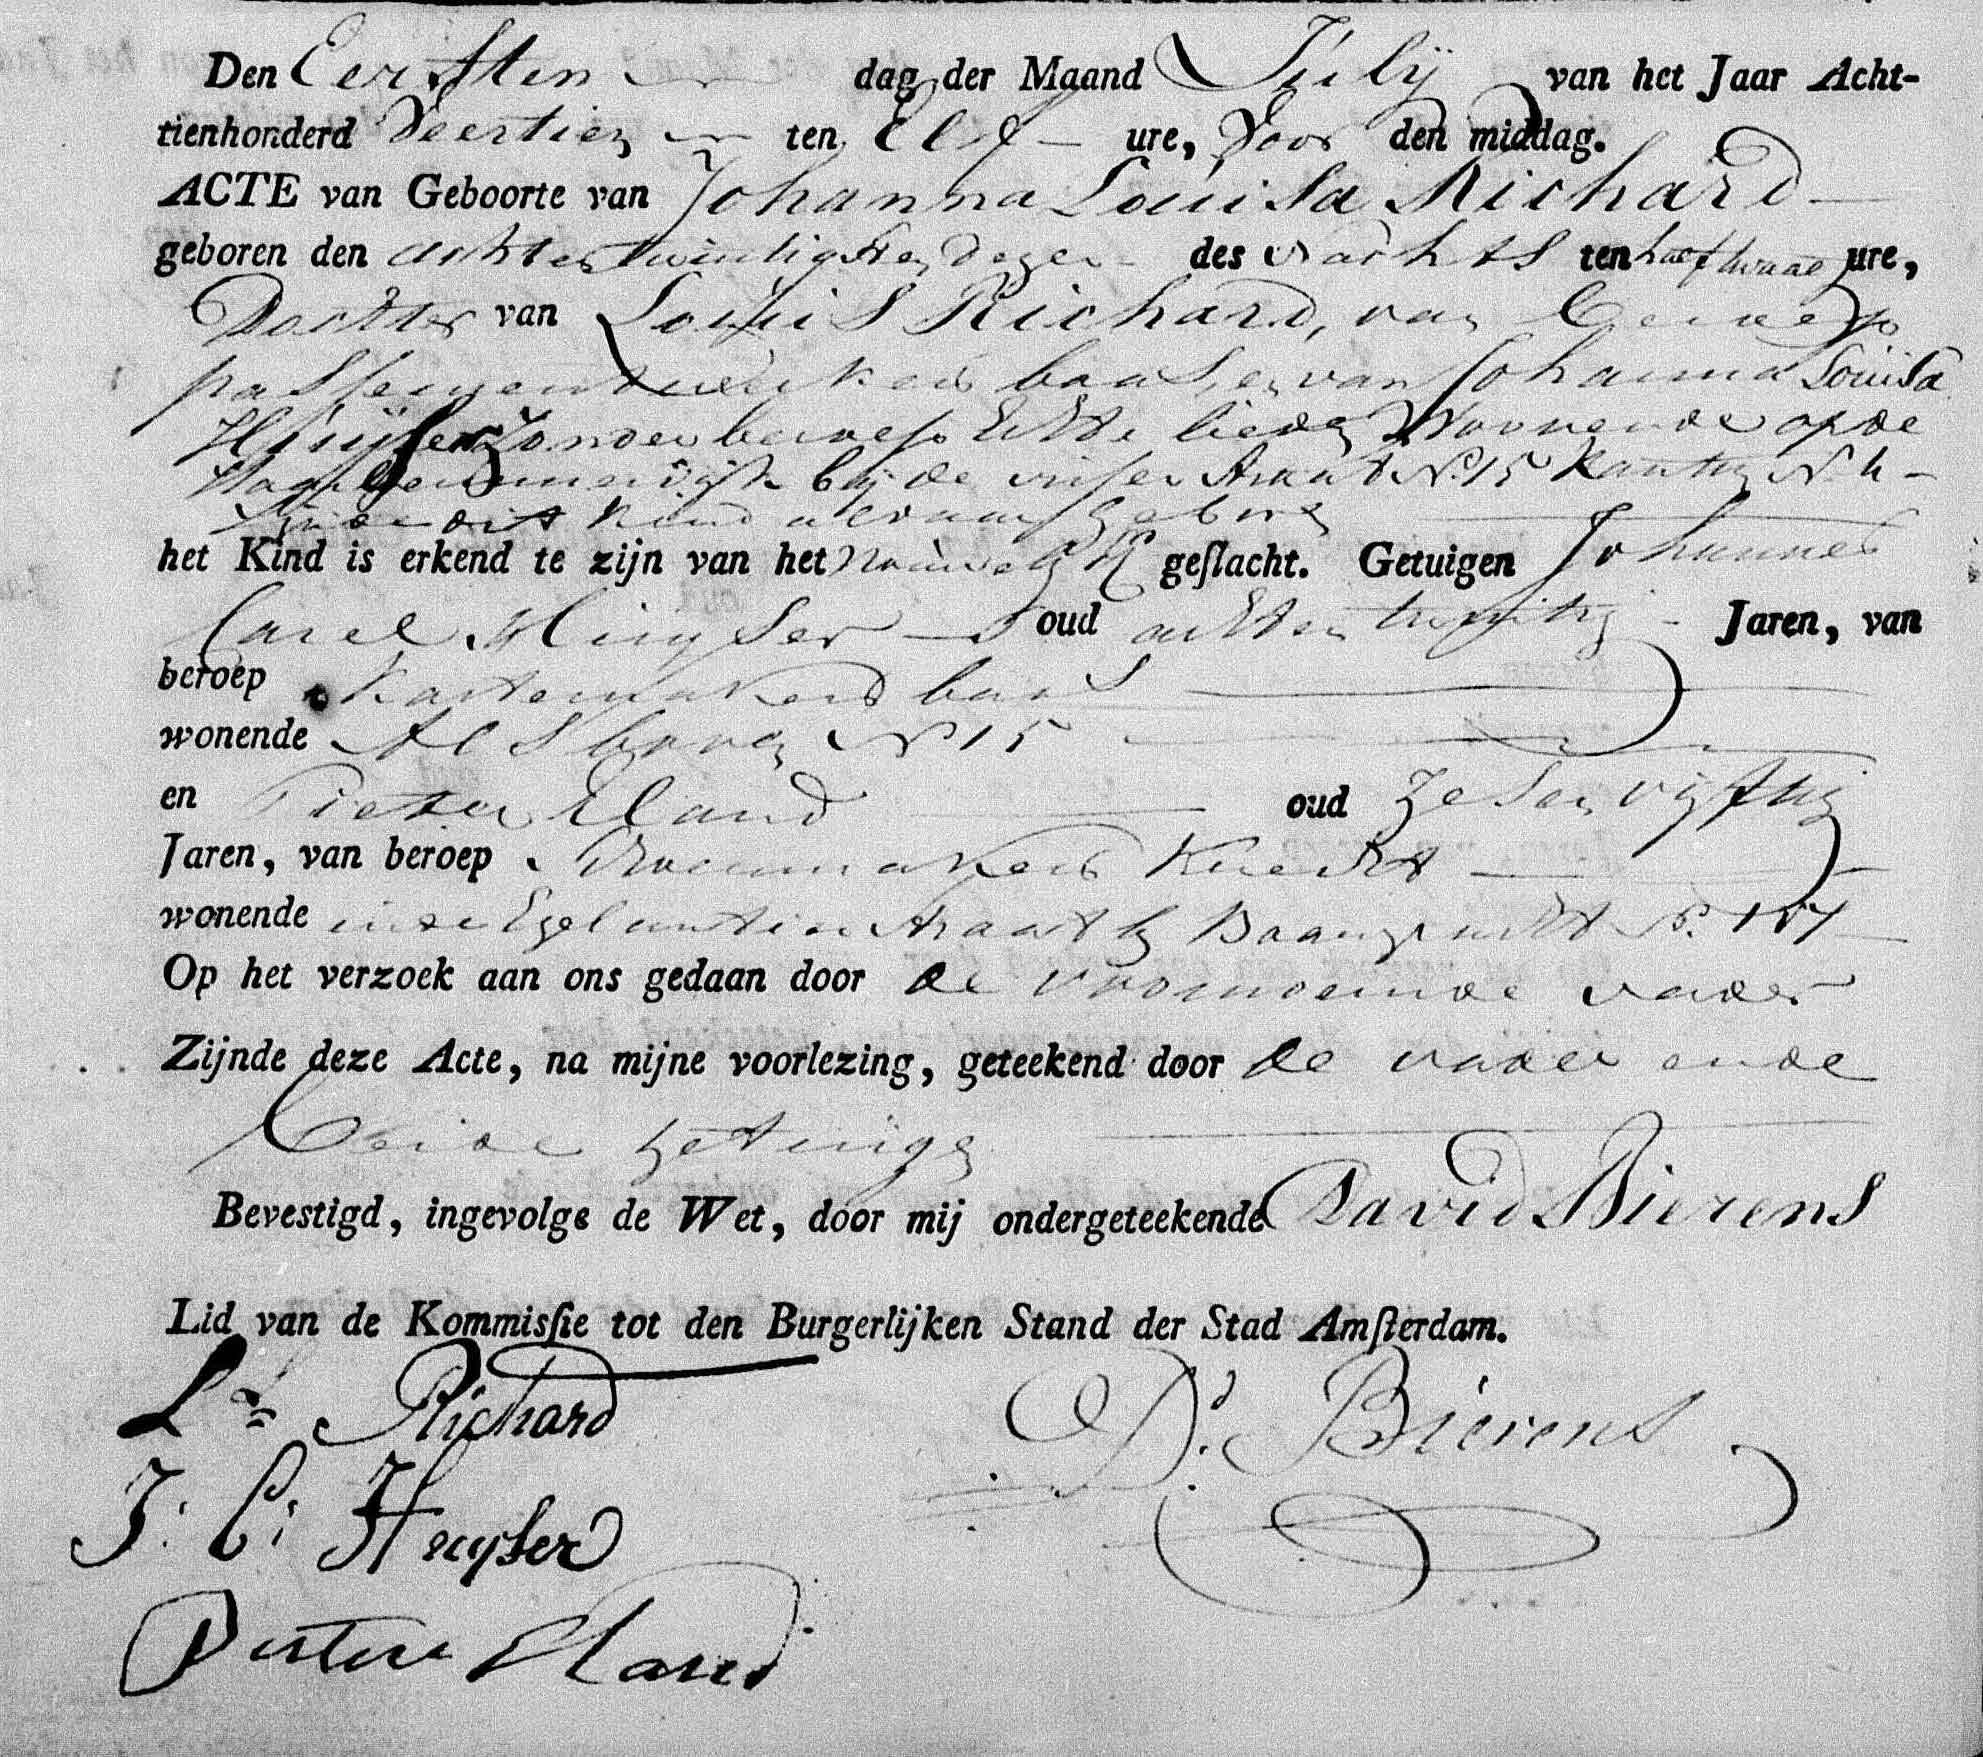 Den Eersten dag der Maand July van het Jaar Acht-
tienhonderd Veertien ten Elf ure, Voor den middag.
ACTE van Geboorte van Johanna Louisa Richard
geboren den achtentwintigsten dezer des nachts ten half twaalf ure,
Dochter van Louis Richard, van beroep
passementwerkers baas, en van Johanna Louisa
Huijser zonder beroep Echte lieden Wonende op de
bij de straat N. 15 Kanton N. 4
Zijnde dit kind aldaar geboren
het Kind is erkend te zijn van het vrouwelijk geſlacht. Getuigen Johannes
Carel Huyser oud achtentwintig Jaren, van
beroep Kastemakers baas
wonende N 15
en Pieter Eland oud Zesenvijftig
Jaren, van beroep Knecht
wonende in de Egelantierstraat bij Baangracht N.
Op het verzoek aan ons gedaan door de voornoemde vader
Zijnde deze Acte, na mijne voorlezing, geteekend door de vader en de
beide getuigen
Bevestigd, ingevolge de Wet, door mij ondergeteekende David Bierens
Lid van de Kommisſie tot den Burgerlijken Stand der Stad Amſterdam.
Ls Richard
D. Bierens
J: C: Huyser
Pieter Eland